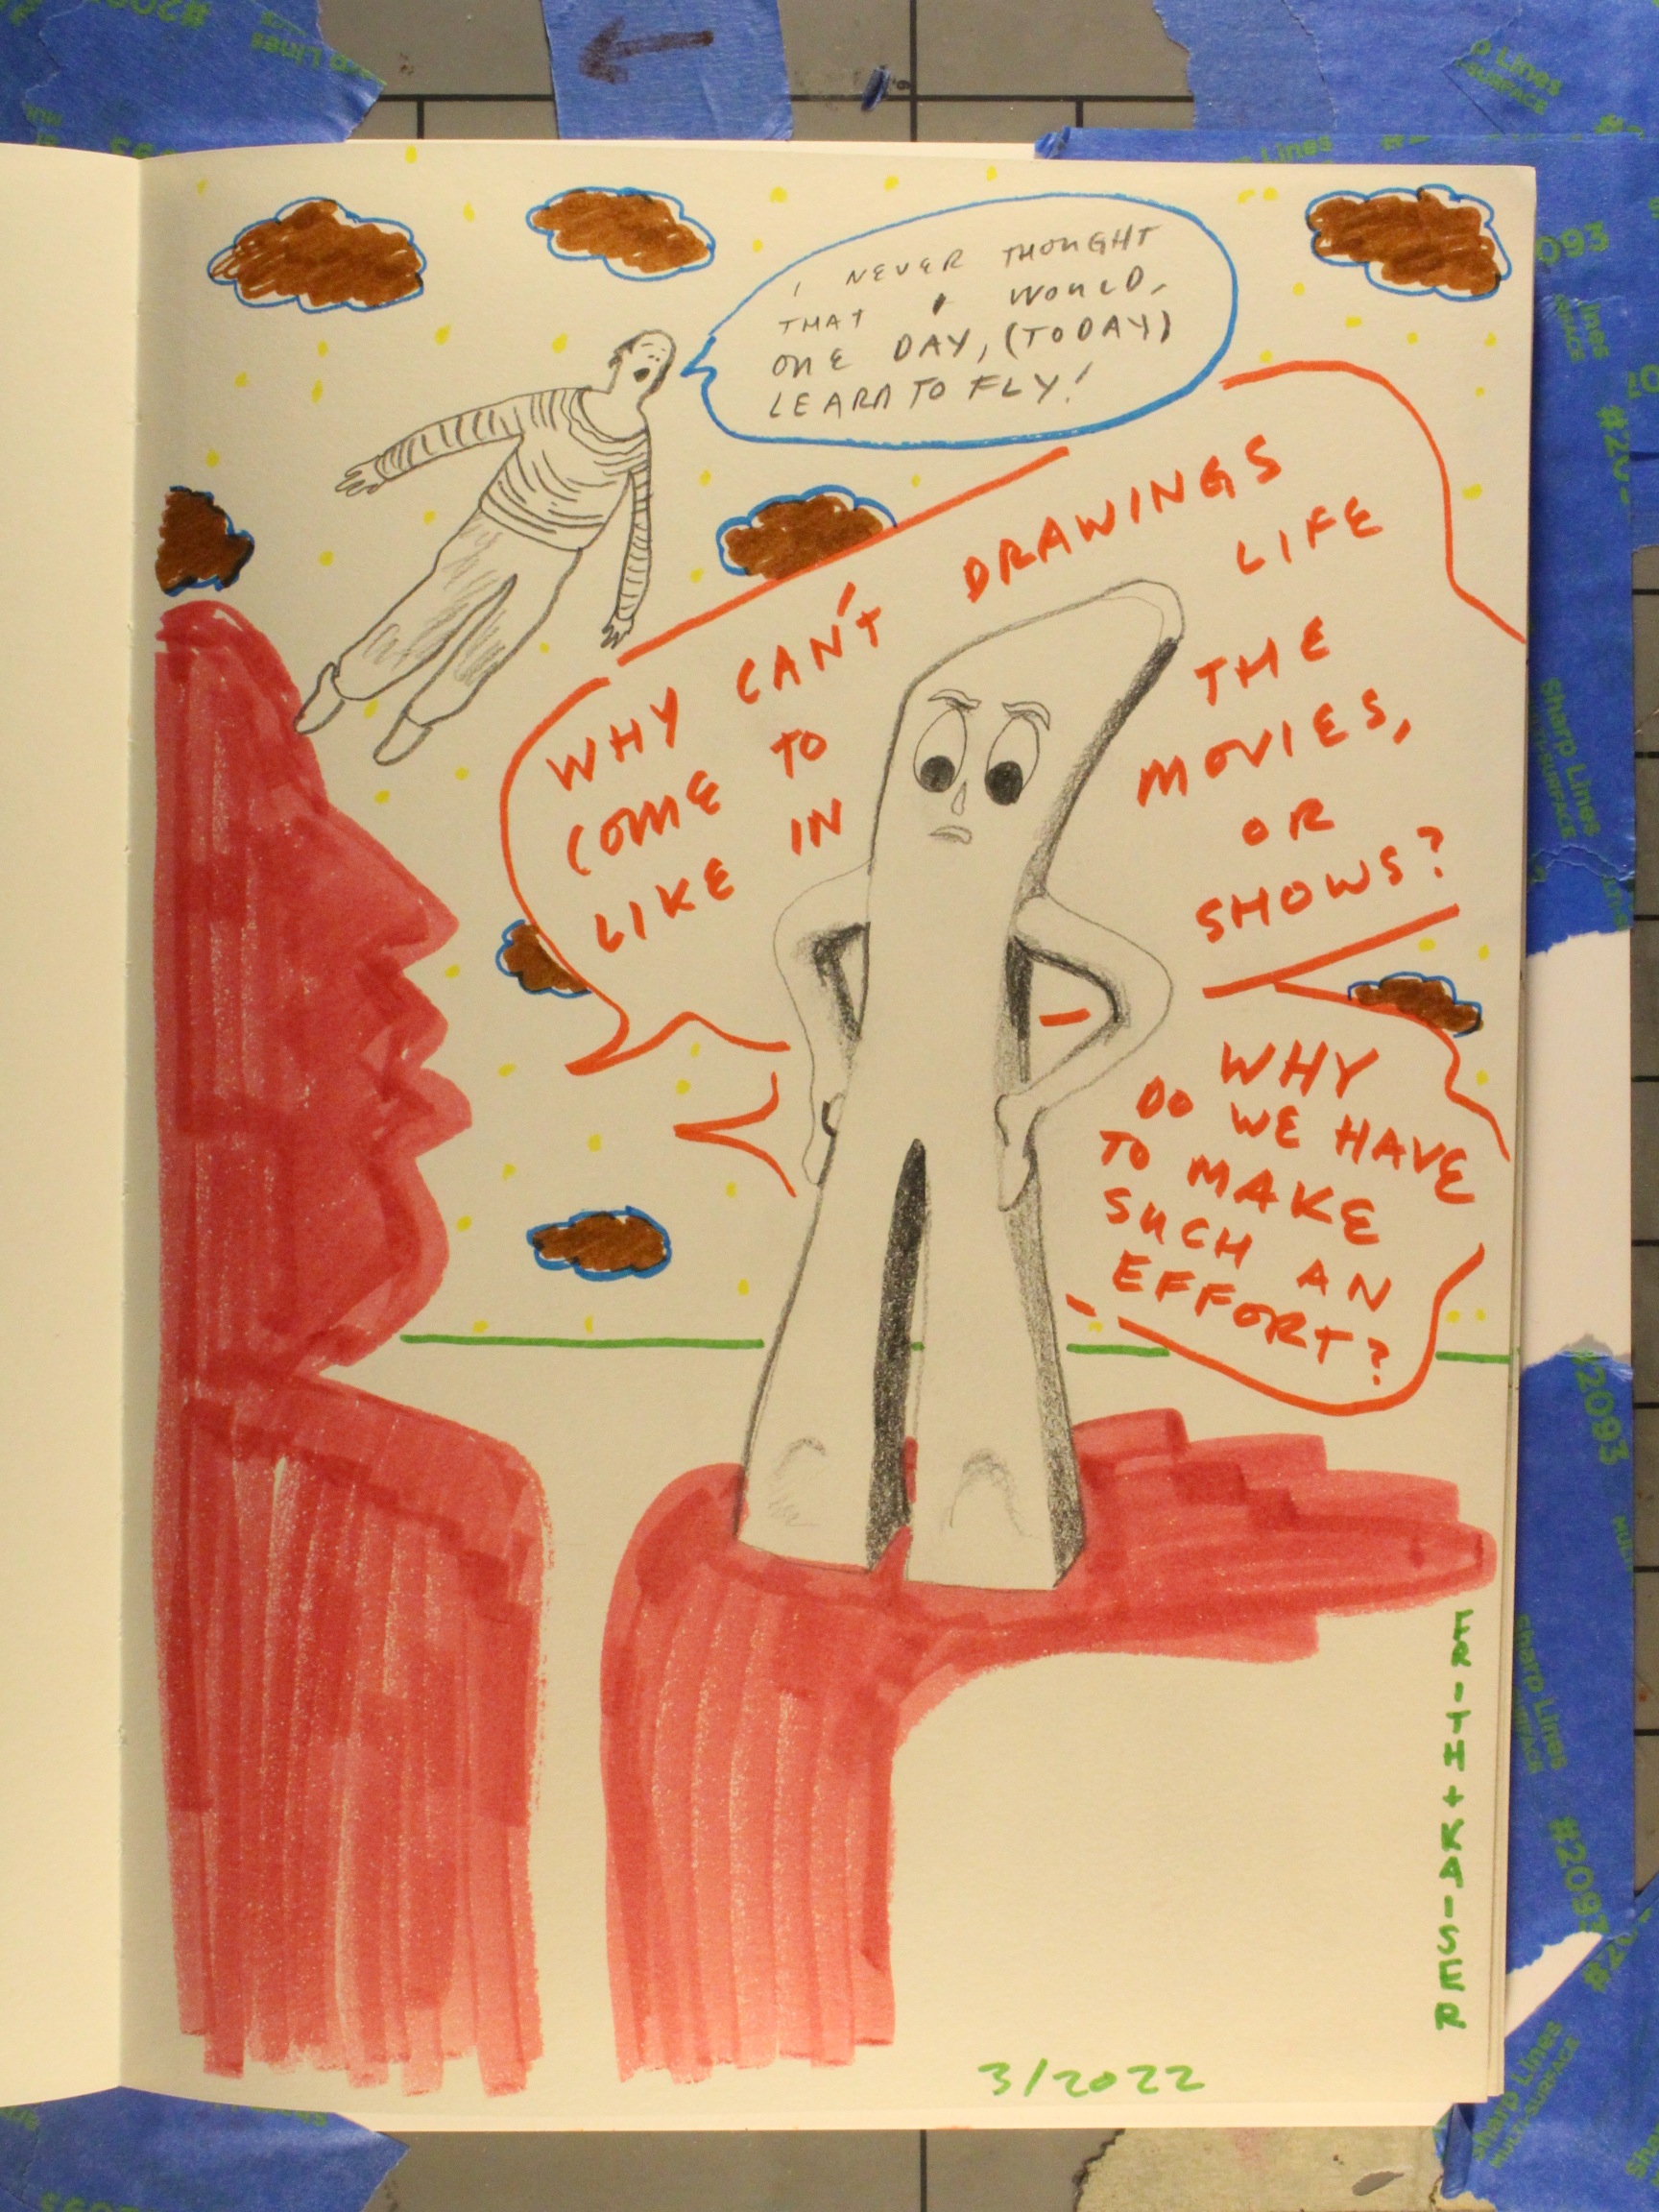 I NEVER THOUGHT
THAT I WOULD,
ONE DAY, (TODAY)
LEARN TO FLY!
WHY CAN'T DRAWINGS
COME TO LIFE
LIKE IN THE
MOVIES,
OR
SHOWS?
WHY
DO WE HAVE
TO MAKE
SUCH AN
EFFORT?
FRITH+KAISER
3/2022
Sharp Lines
MULTI-SURFACE
#2093